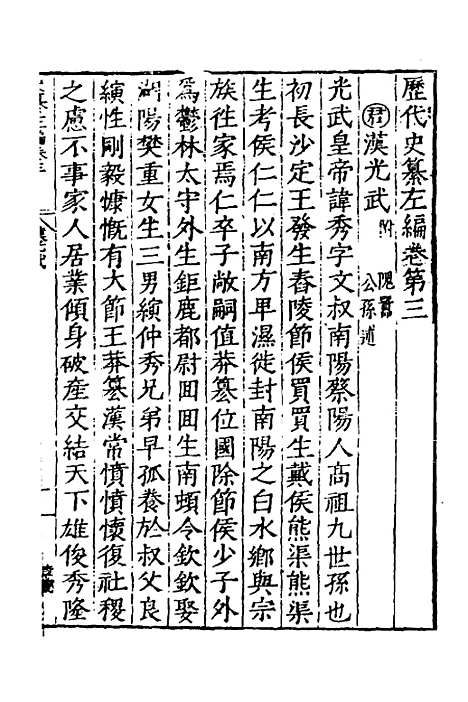 歷代史纂左編卷第三
君漢光武 附 隗囂 公孫述
光武皇帝諱秀字文叔南陽蔡陽人高祖九世孫也
初長沙定王發生舂陵節侯買買生戴侯熊渠熊渠
生考侯仁仁以南方卑濕徙封南陽之白水鄉與宗
族往家焉仁卒子敞嗣值莽篡位國除節侯少子外
爲鬱林太守外生鉅鹿都尉囬囬生南頓令欽欽娶
湖陽樊重女生三男縯仲秀兄弟早孤養於叔父良
縯性剛毅慷慨有大節王莽篡漢常憤憤懷復社稷
之慮不事家人居業傾身破産交結天下雄俊秀隆